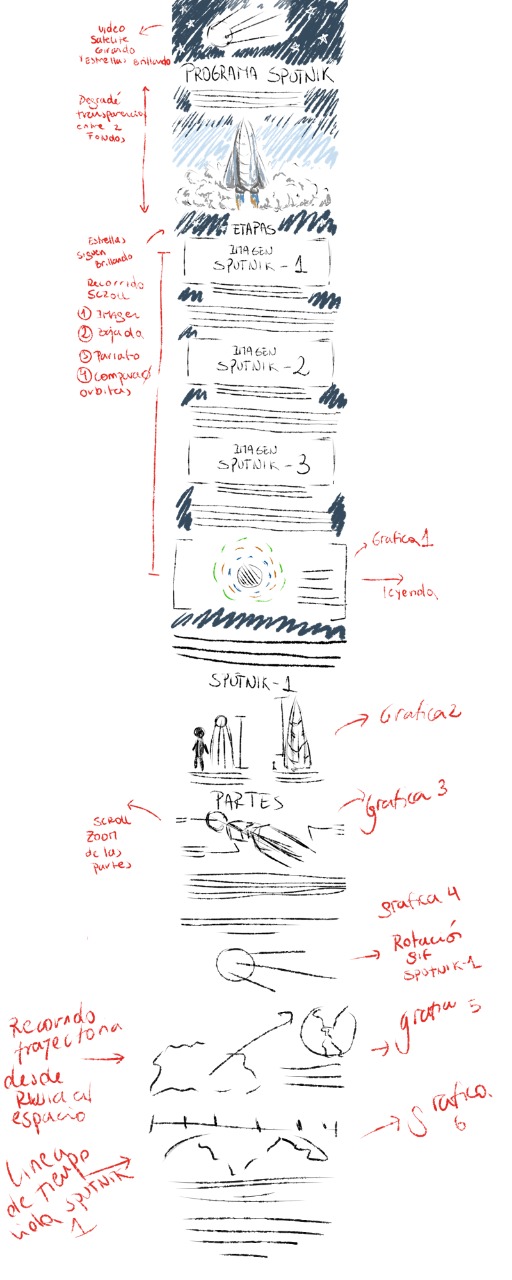 Video
Satelite
Girando
Y Estrellas Brillando
PROGRAMA SPUTNIK
Degradé
transparencia
entre 2
Fondos
ETAPAS
Estrellas
Siguen
Brillando
IMAGEN
SPUTNIK - 1
Recorrido
SCROLL
① Imagen
② Bajada
③ Parrafo
④ comparacio
orbitas
IMAGEN
SPUTNIK - 2
IMAGEN
SPUTNIK - 3
Grafica 1
leyenda
SPUTNIK-1
Grafica 2
PARTES
Grafica 3
SCROLL
ZOOM
de las
partes
grafica 4
Rotación
gif
SPUTNIK-1
Recorrido
trayectoria
desde
Rusia al
espacio
grafica 5
grafica
6
Linea
de tiempo
vida SPUTNIK
1